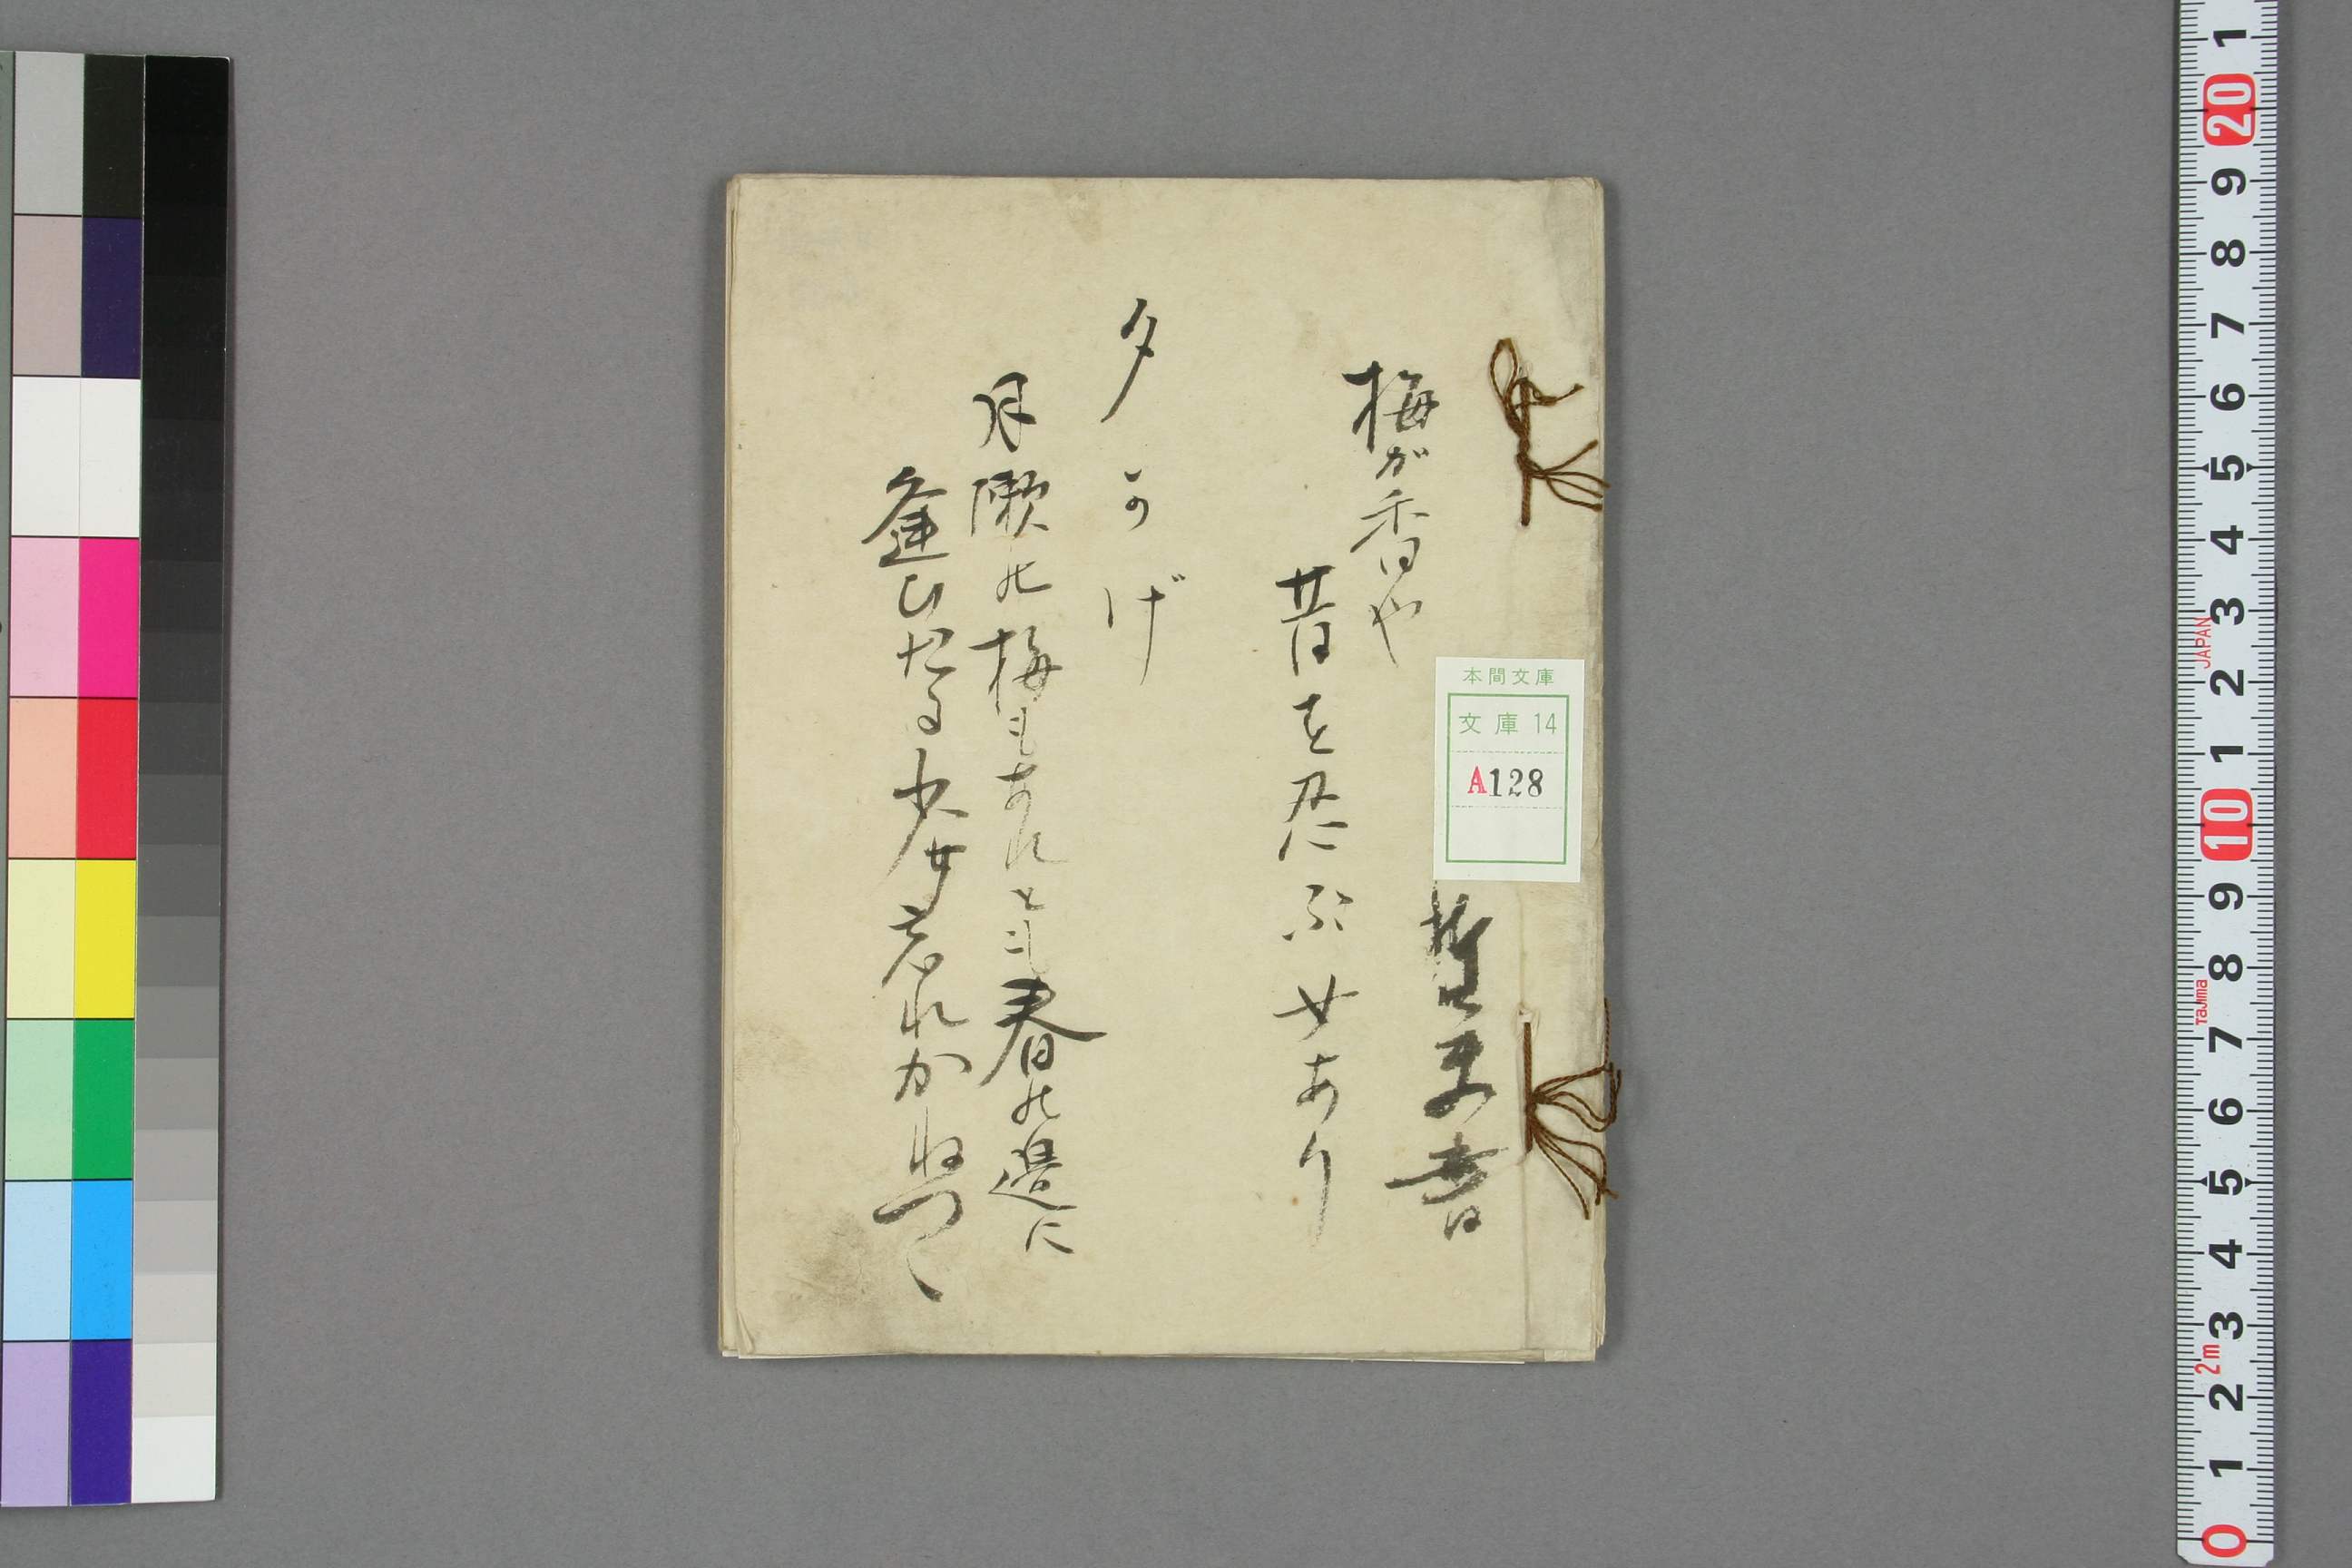 梅が香や
昔を忍ぶ女あり
夕かげ
月瀬の梅もあれとも春の邊に
逢ひたる少女忘れかねつゝ
本間文庫
文庫 14
A128
1
20
9
8
7
6
5
4
3
2
1
10
9
8
7
6
5
4
3
2
1
0
JAPAN
Tajima
2m